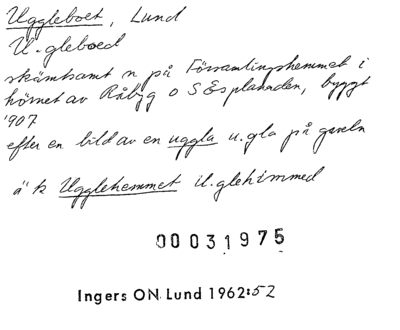 Uggleboet, Lund
U.gleboed
skämtsamt n på Församlingshemmet i
hörnet av Råbyg o S Esplanaden, byggt
1907
efter en bild av en uggla u.gla på gaveln
ä k Ugglehemmet U.glehimmed
00031975
Ingers ON Lund 1962:52